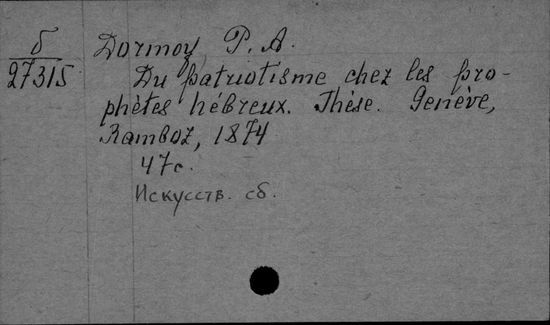 б
27315
Dormoy, P. A.
Du patriotisme chez les pro-
phètes hébreux. Thèse. Genève,
Ramboz, 1874
47с.
Искусств. сб.